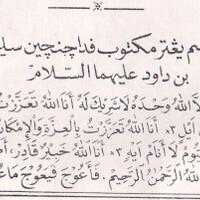 سم يغتر مكتوب فداچنچين سليـ
بن داود عليهما السلام
لا الله وحده لا شريك له أنا الله تعززت
أنا الله تعززت بالعزة والإمكا
يوم لا أنام ايه ٣ أنا الله خبير قادر
الله الرحمن الرحيم . فأعوج فيعوج